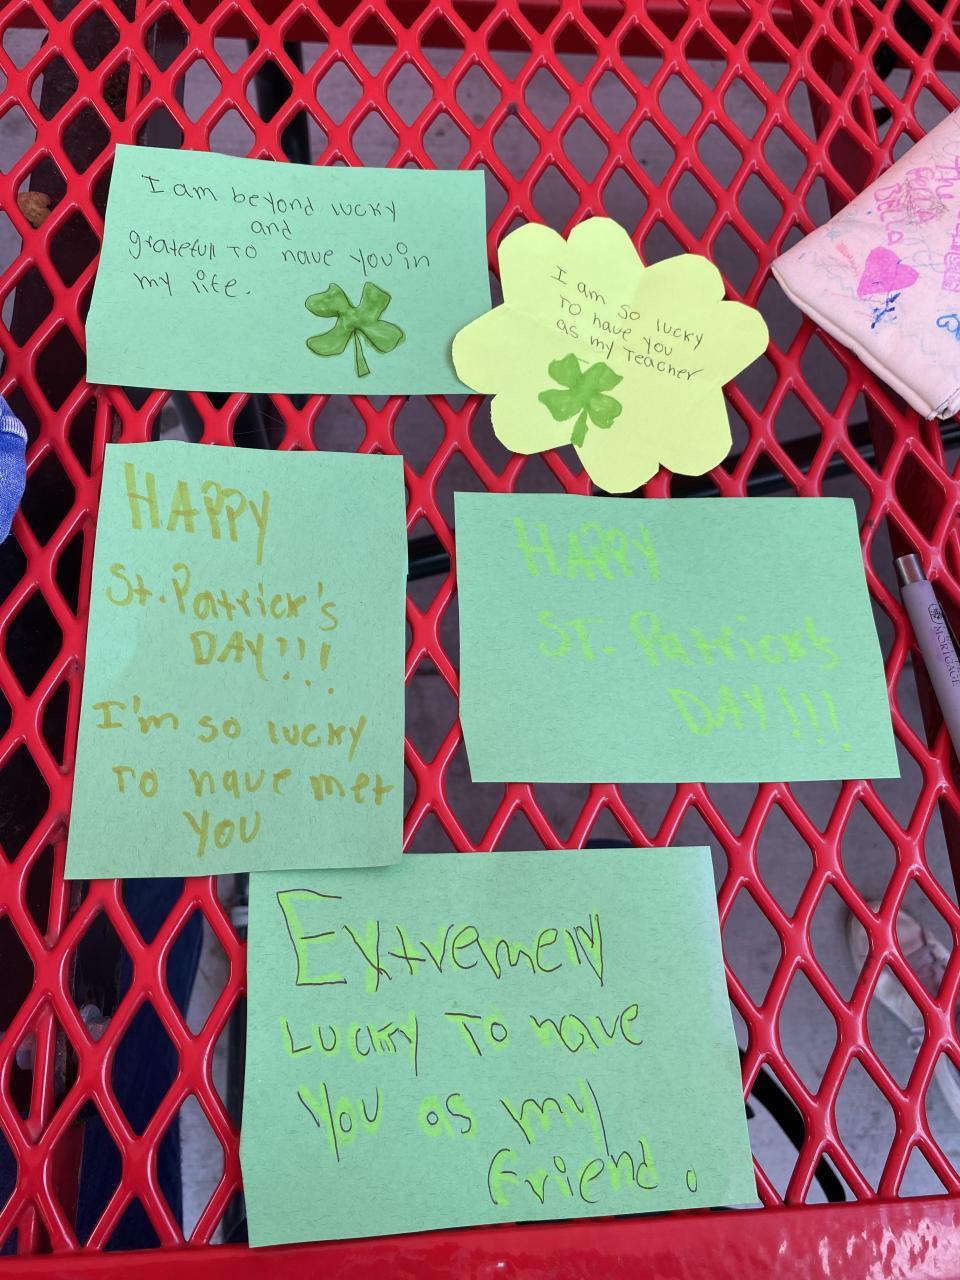 I am beyond lucky
and
gratefull to have you in
my life.
I am so lucky
To have you
as my Teacher
HAPPY
St. Patrick's
DAY!!!
I'm so lucky
To have met
YOU
HAPPY
ST. Patrick's
DAY!!!
Extremely
Lucky To have
You as my
friend.
MORTGAGE